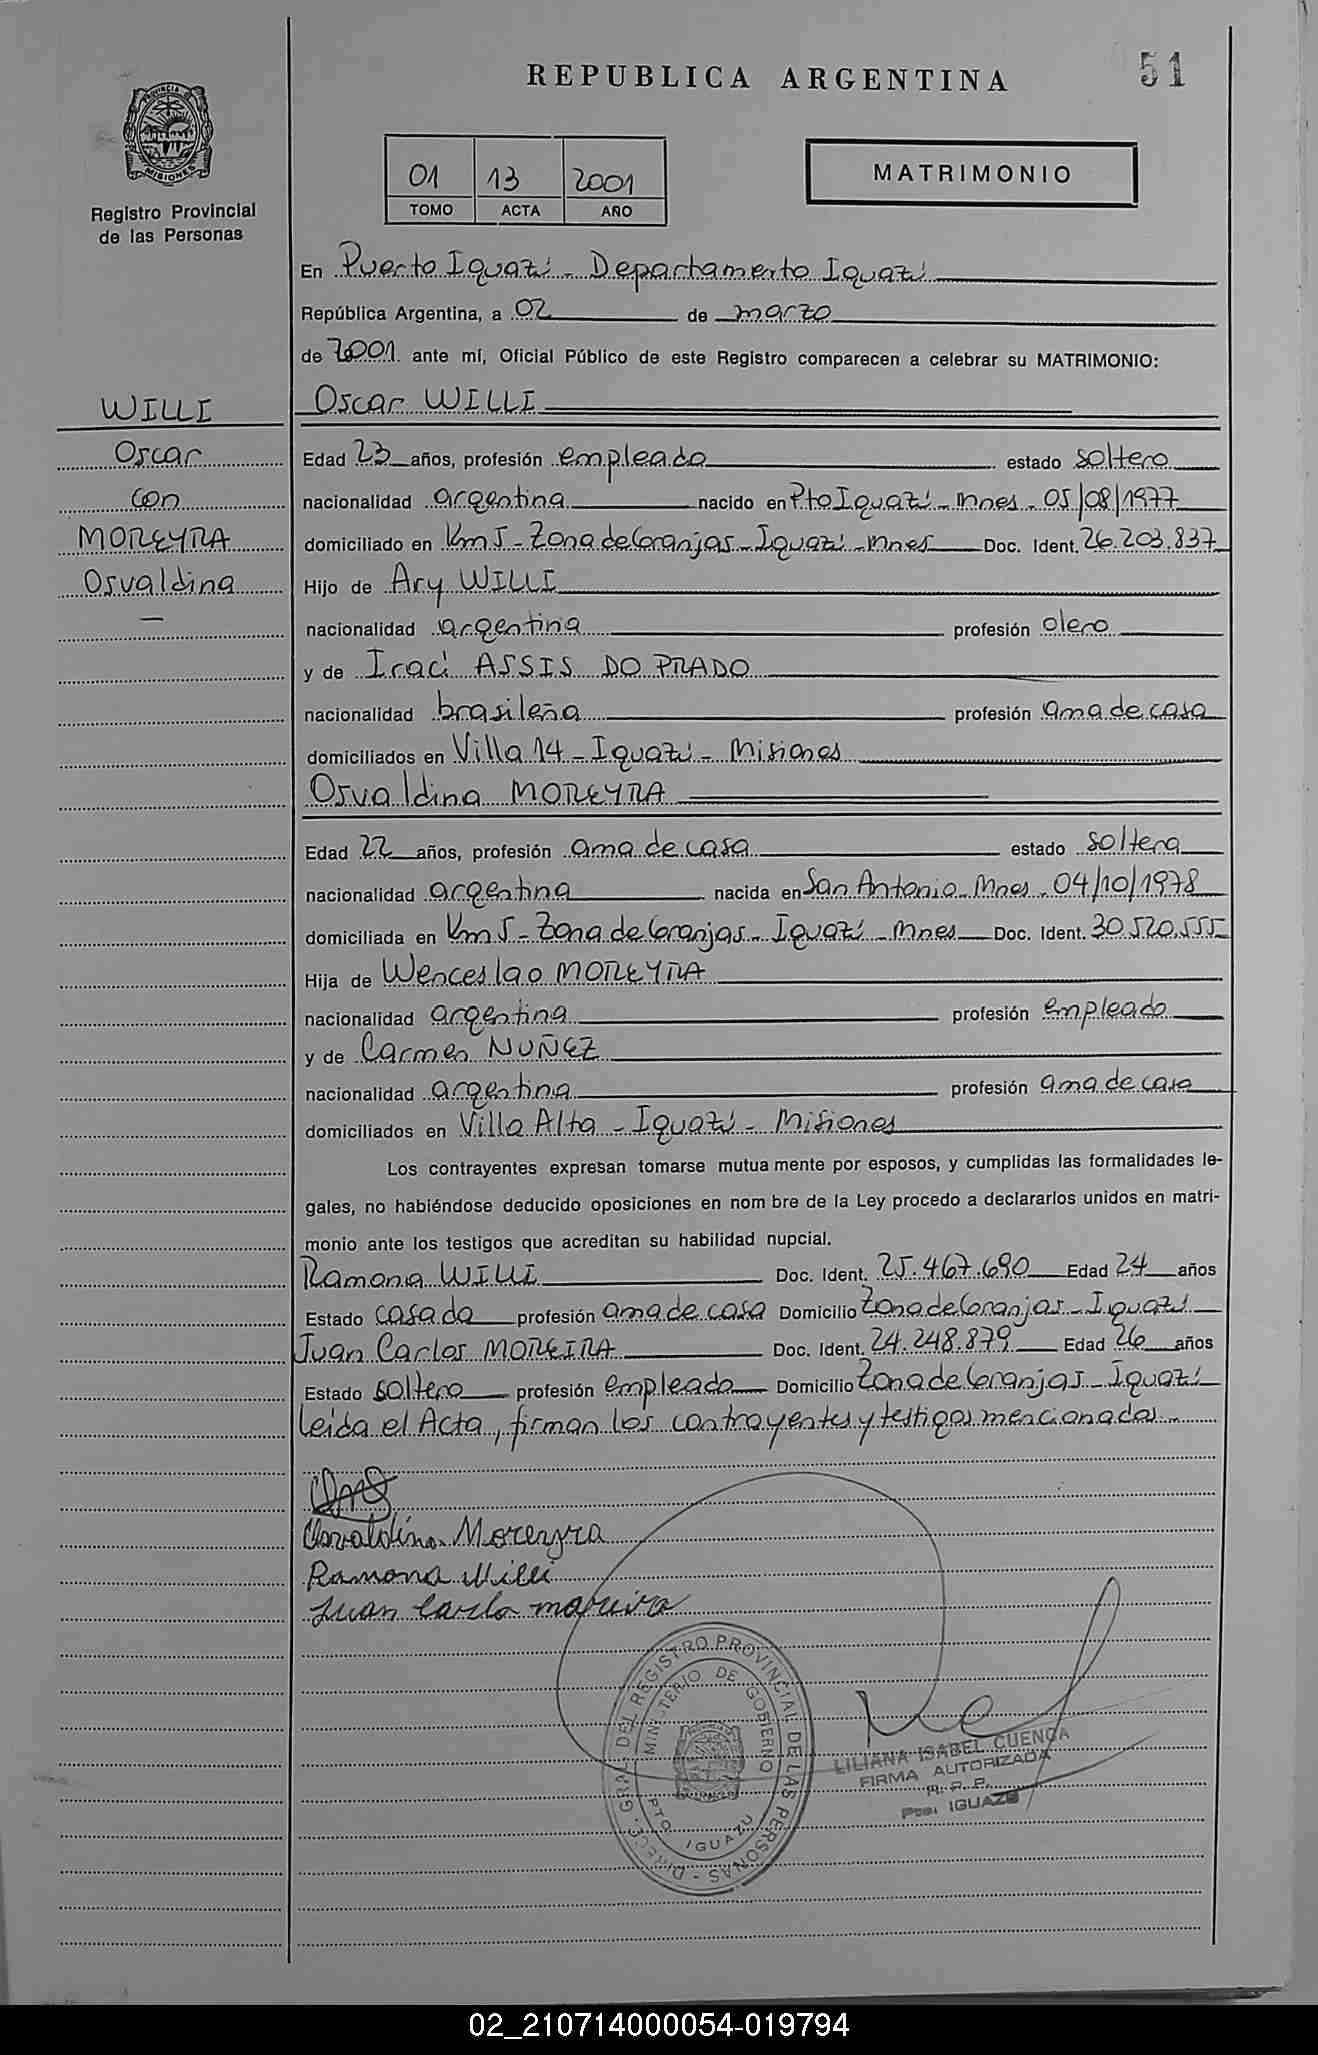 REPUBLICA ARGENTINA
51
PROVINCIA DE
MISIONES
Registro Provincial
de las Personas
01 13 2001
TOMO ACTA AÑO
MATRIMONIO
En Puerto Iguazú - Departamento Iguazú
República Argentina, a 02 de marzo
de 2001 ante mí, Oficial Público de este Registro comparecen a celebrar su MATRIMONIO:
WILLI
Oscar
con
MOREYRA
Osvaldina
Oscar WILLI
Edad 23 años, profesión empleado estado soltero
nacionalidad argentina nacido en Pto Iguazú - Mnes - 05/08/1977
domiciliado en Km 5 - Zona de Granjas - Iguazú - Mnes Doc. Ident. 26.203.837
Hijo de Ary WILLI
nacionalidad argentina profesión olero
y de Iraci ASSIS DO PRADO
nacionalidad brasileña profesión ama de casa
domiciliados en Villa 14 - Iguazú - Misiones
Osvaldina MOREYRA
Edad 22 años, profesión ama de casa estado soltera
nacionalidad argentina nacida en San Antonio - Mnes - 04/10/1978
domiciliada en Km 5 - Zona de Granjas - Iguazú - Mnes Doc. Ident. 30.520.555
Hija de Wenceslao MOREYRA
nacionalidad argentina profesión empleado
y de Carmen NUÑEZ
nacionalidad argentina profesión ama de casa
domiciliados en Villa Alta - Iguazú - Misiones
Los contrayentes expresan tomarse mutua mente por esposos, y cumplidas las formalidades le-
gales, no habiéndose deducido oposiciones en nom bre de la Ley procedo a declararlos unidos en matri-
monio ante los testigos que acreditan su habilidad nupcial.
Ramona WILLI Doc. Ident. 25.467.690 Edad 24 años
Estado casada profesión ama de casa Domicilio Zona de Granjas - Iguazú
Juan Carlos MOREIRA Doc. Ident. 24.248.879 Edad 26 años
Estado soltero profesión empleado Domicilio Zona de Granjas - Iguazú
Leída el Acta, firman los contrayentes y testigos mencionados.-
Osvaldina Moreyra
Ramona Willi
Juan Carlo moreira
DIREC. GRAL. DEL REGISTRO PROVINCIAL DE LAS PERSONAS
MINISTERIO DE GOBIERNO
PTO. IGUAZU
LILIANA ISABEL CUENCA
FIRMA AUTORIZADA
R. P. P.
Pto. IGUAZU
02_210714000054-019794